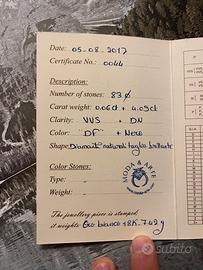 Date: 05-08-2017
Certificate No.: 0044
Description:
Number of stones: 83
Carat weight: 0.06ct + 4.09ct
Clarity: VVS + DN
Color: "DF" + Nero
Shape: Diamanti naturali taglio brillante
Color Stones:
Type:
Weight:
MODA & ARTE
The jewellery pieces is stamped,
it weights: Oro bianco 18K- 7.42 g
subito